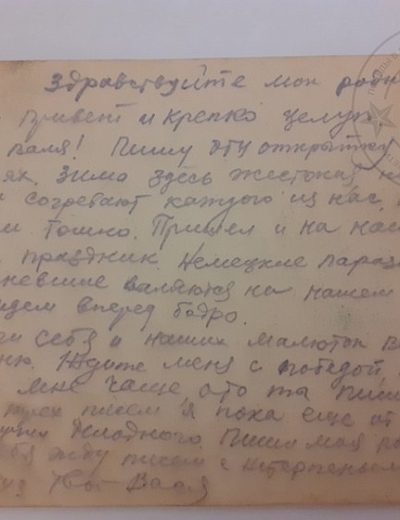 Здравствуйте мои родн
Привет и крепко целую
Валя! Пишу эту открытку
ях. Зима здесь жестокая
согревают каждого из нас
тошно. Пришел и на наш
праздник. Немецкие параз
невшие валяются на нашем
идем вперед бодро.
себя и наших малюток
Ждите меня с победой
мне чаще а то ты пиш
трех писем я пока еще
ни одного. Пиши моя
жду писем с нетерпеньем
Вася